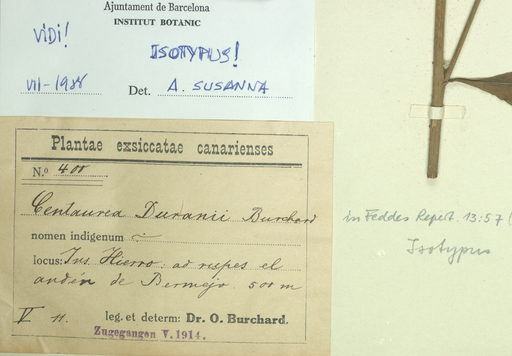 Ajuntament de Barcelona
INSTITUT BOTANIC
VIDI!
ISOTYPUS!
VII-1988 Det. A. SUSANNA
Plantae exsiccatae canarienses
N.º 400
Centaurea Duranii Burchard
nomen indigenum
locus: Ins. Hierro: ad rupes el
andén de Bermejo. 500 m
V 11. leg. et determ: Dr. O. Burchard.
Zugegangen V. 1914.
in Feddes Repert. 13:57 (
Isotypus